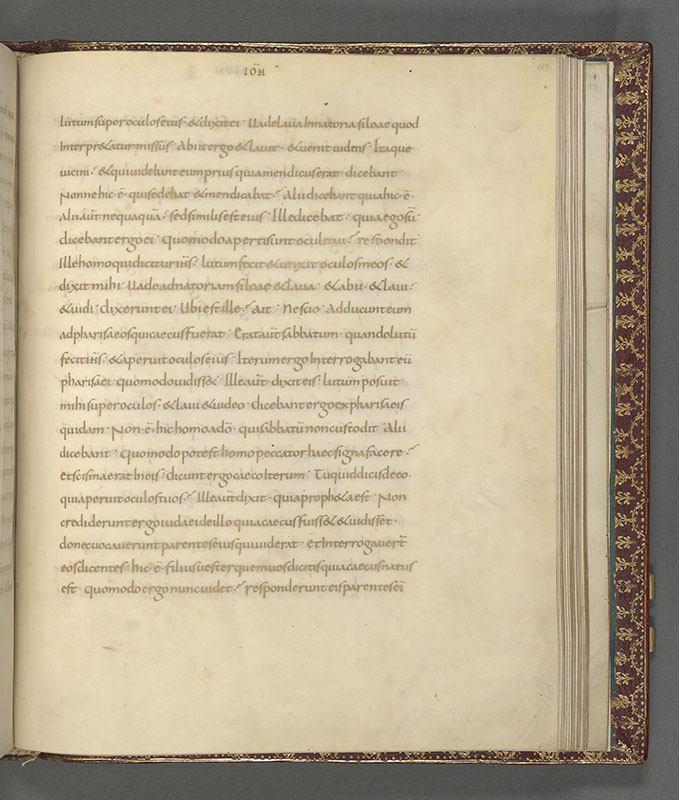 IOH̄
lutum super oculos eius · & dixit ei Uade laua In natoria siloae quod
Interpr&atur missus Abiit ergo & lauit · & uenit uidens Itaque
uicini · & qui uidebant eum prius quia mendicus erat · dicebant
Nonne hic · ē · qui sedebat & mendicabat · Alii dicebant quia hic · ē ·
alii aūt nequaquā · sed similis est eius · Ille dicebat · quia ego sū
dicebant ergo ei Quomodo aperti sunt oculi respondit
Ille homo qui dicitur iħs · lutum fecit & unxit oculos meos · &
dixit mihi Uade ad natoriam siloae & laua · & abii · & laui ·
& uidi dixerunt ei Ubi est ille · ait · Nescio Adducunt eum
ad pharisaeos qui caecus fuerat Erat aūt sabbatum · quando lutū
fecit iħs · & aperuit oculos eius Iterum ergo Interrogabant eū
pharisaei · quomodo uidiss& Ille aūt dixit eis lutum posuit
mihi super oculos · & laui & uideo dicebant ergo ex pharisaeis
quidam · Non · ē · hic homo a dō · qui sabbatū non custodit Alii
dicebant Quomodo potest homo peccator haec signa facere
Et scisma erat In eis dicunt ergo caeco Iterum Tu quid dicis de eo ·
qui aperuit oculos tuos Ille aūt dixit · quia proph&a est Non
crediderunt ergo iudaei de illo quia caecus fuiss& & uidisset ·
donec uocauerunt parentes eius qui uiderat · Et Interrogauert̄
eos dicentes hic · ē · filius uester quem uos dicitis quia caecus natus
est · quomodo ergo nunc uidet responderunt eis parentes ei